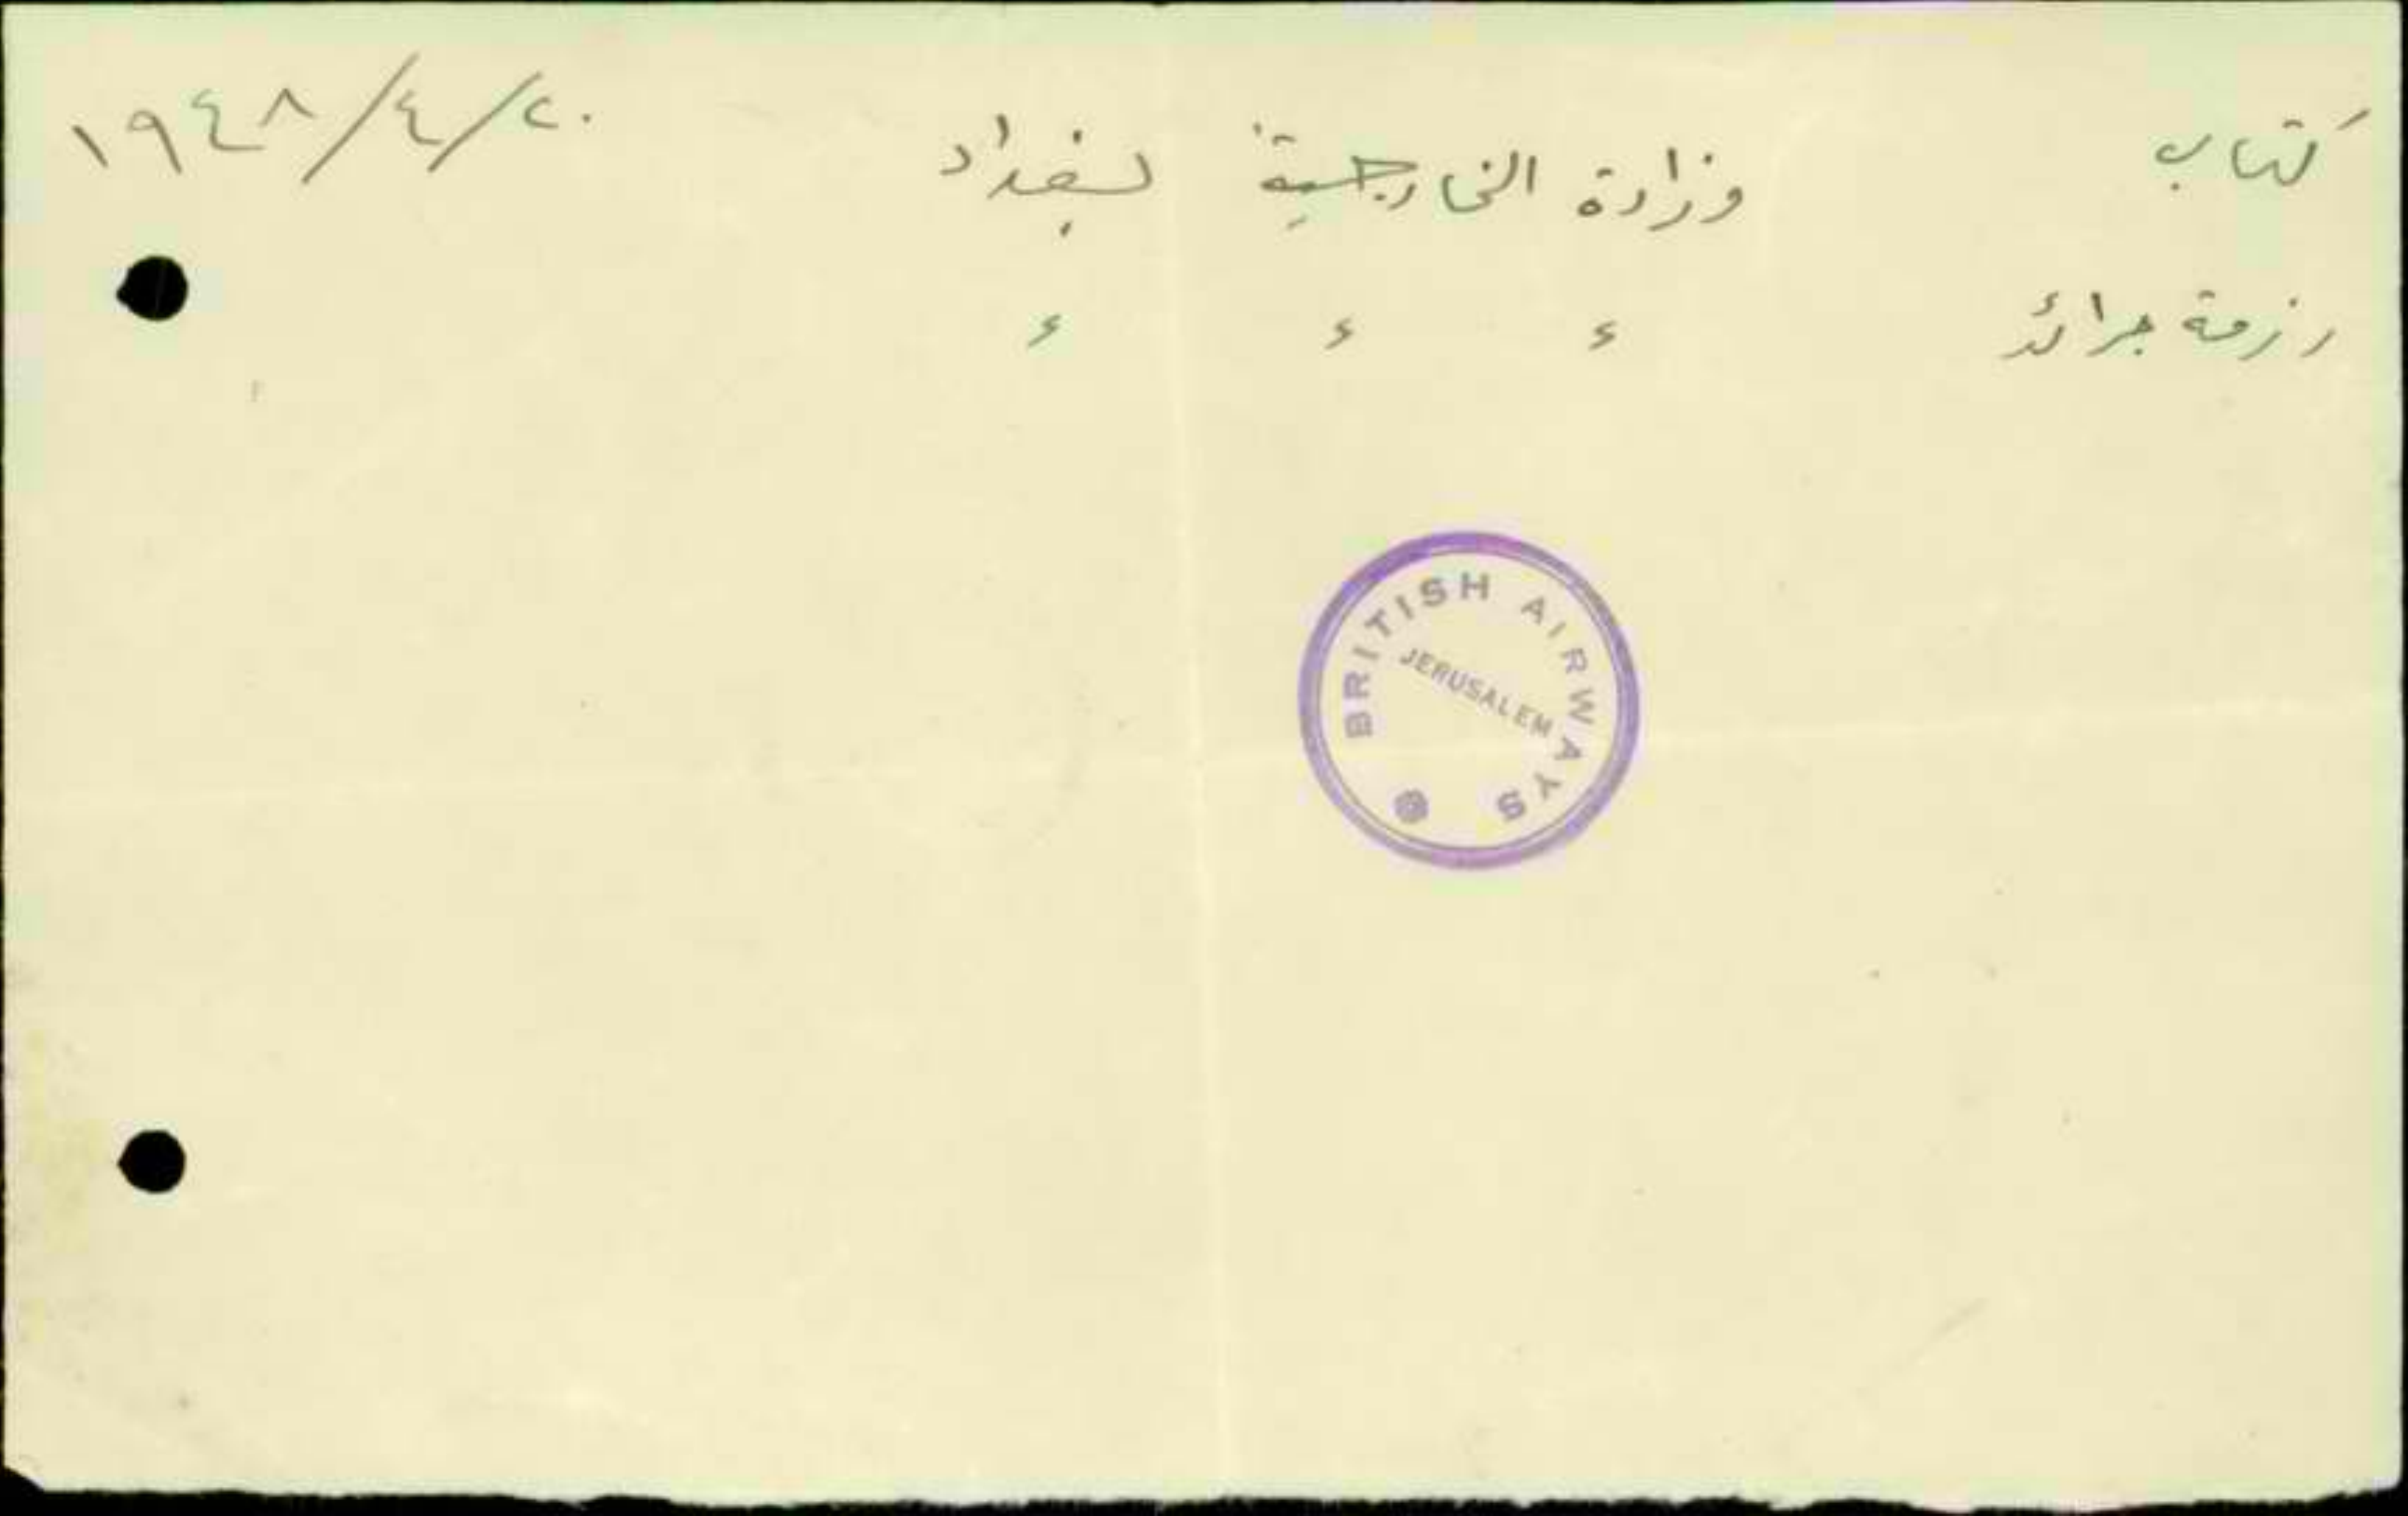 كتاب وزارة الخارجية بغداد ١٩٤٨/٤/٢٠
رزمة جرائد ء ء ء
BRITISH AIRWAYS
JERUSALEM